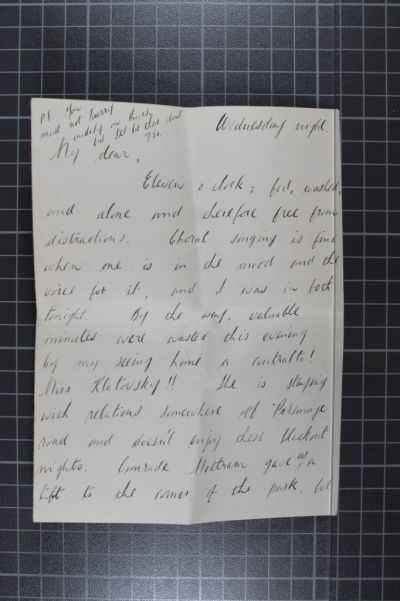 P.S. You
must not hurry
unduly on Friday
but
7.30.
Wednesday night.
My dear,
Eleven o clock; fed, washed,
and alone and therefore free from
distractions. Choral singing is fine
when one is in the mood and the
voice for it, and I was in both
tonight. By the way, valuable
minutes were wasted this evening
by my seeing home a contralto!
Miss Kletovsky!! She is staying
with relations somewhere off Parsonage
road and doesn't enjoy these blackout
nights. Comrade Mottram gave us a
lift to the corner of the park, but